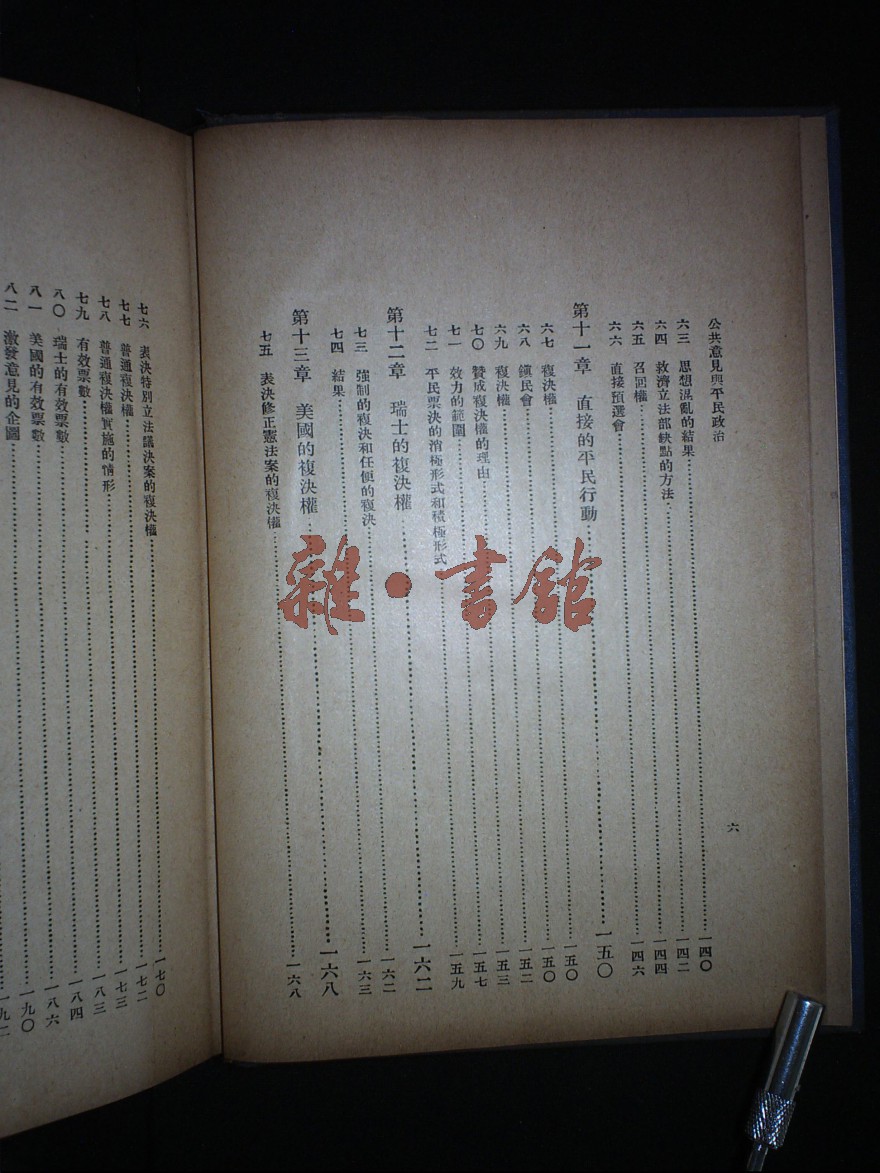 公共意見與平民政治 六
六三 思想混亂的結果 一四〇
六四 救濟立法部缺點的方法 一四二
六五 召回權 一四四
六六 直接預選會 一四六
第十一章 直接的平民行動 一五〇
六七 複決權 一五〇
六八 鎮民會 一五〇
六九 複決權 一五二
七〇 贊成複決權的理由 一五三
七一 效力的範圍 一五七
七二 平民票決的消極形式和積極形式 一五九
第十二章 瑞士的複決權 一六二
七三 強制的複決和任便的複決 一六二
七四 結果 一六三
第十三章 美國的複決權 一六八
七五 表決修正憲法案的複決權 一六八
七六 表決特別立法議決案的複決權 一七〇
七七 普通複決權 一七二
七八 普通複決權實施的情形 一七三
七九 有效票數 一八三
八〇 瑞士的有效票數 一八四
八一 美國的有效票數 一八六
八二 激發意見的企圖 一九〇
雜·書館